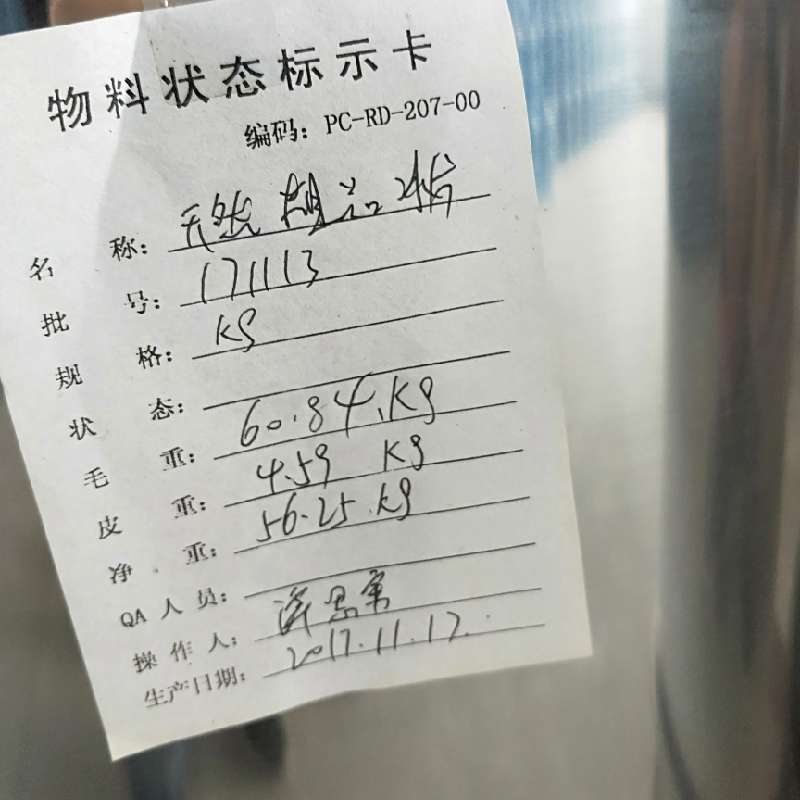 物料状态标示卡
编码: PC-RD-207-00
名称: 天然胡
批号: 171113
规格: Kg
状态:
毛重: 60.84.Kg
皮重: 4.59 Kg
净重: 56.25.Kg
QA人员:
操作人:
生产日期: 2017.11.17.